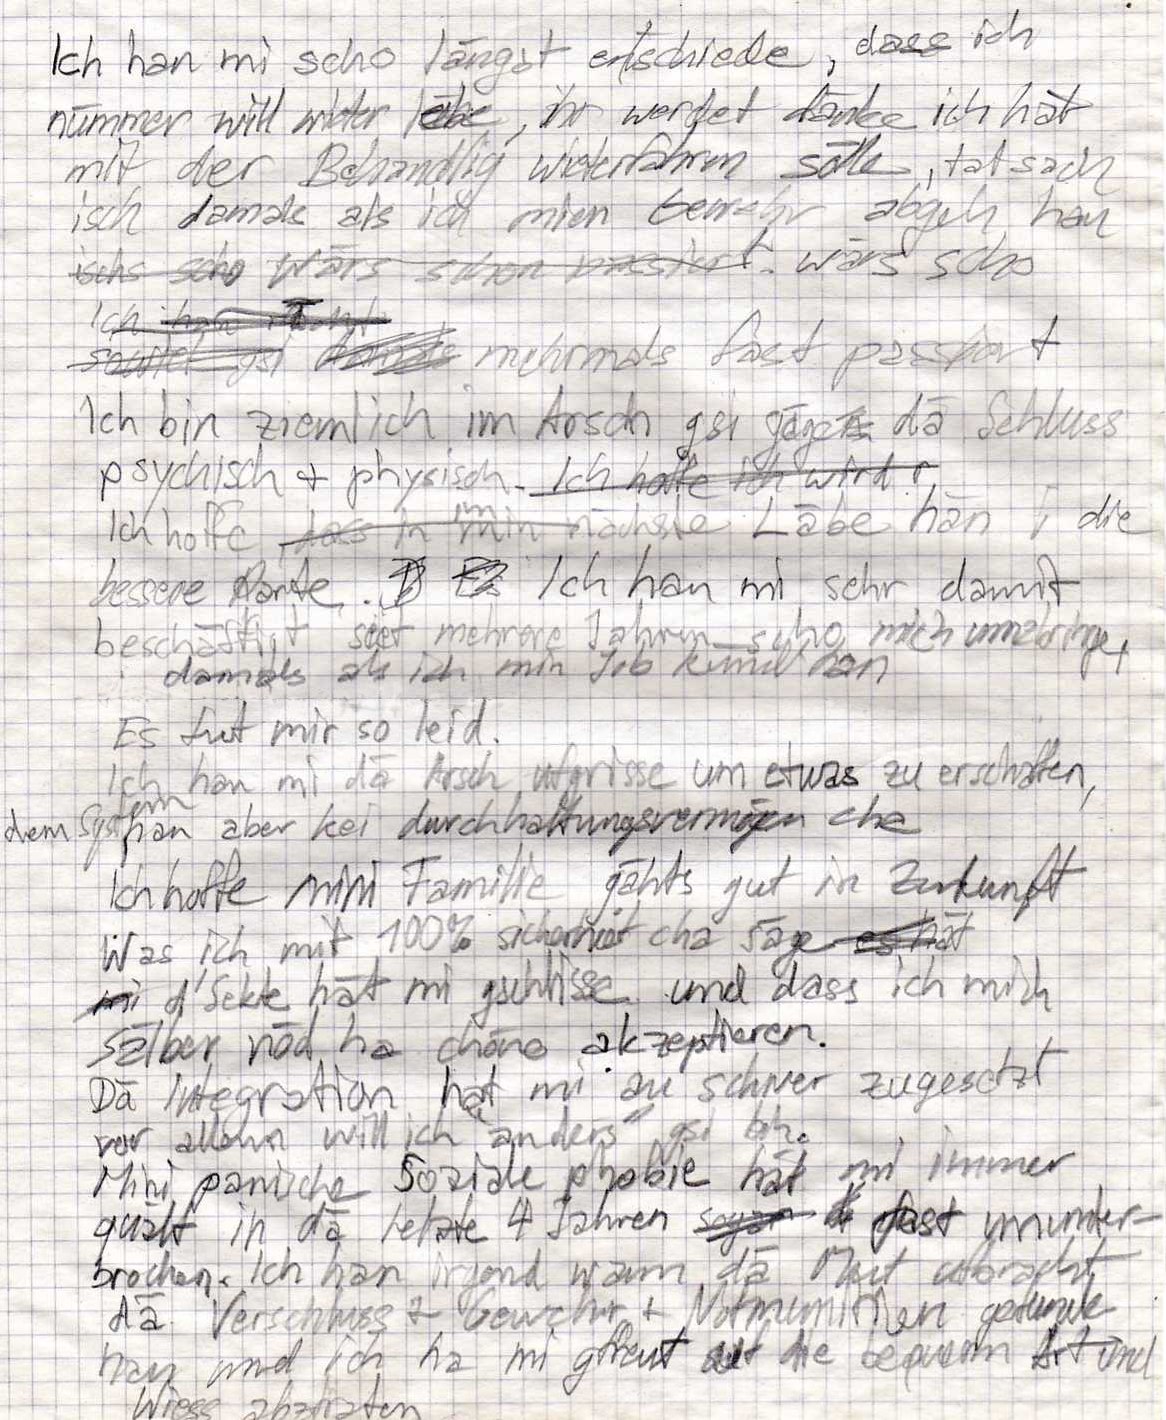 Ich han mi scho längst entschiede, dass ich
nümmer will wiiter läbe, ihr werdet tänke ich hät
mit der Behandlig wiiterfahren sölle, tatsach
isch damals als ich mien Gewehr abgeh han
ischs scho wärs schon passiert. wärs scho
Ich han
gsi damals mehrmals fast passiert
Ich bin ziemlich im Arsch gsi gäge dä Schluss
psychisch + physisch. Ich hoffe ich wird
Ich hoffe dass in min im nächste Läbe han i die
bessere Karte. Ich han mi sehr damit
beschäftigt siet mehrere Jahren scho mich umzbringe,
damals als ich min Job kündt han
Es tut mir so leid.
Ich han mi dä Arsch ufgrisse um etwas zu erschaffen,
dem System han aber kei durchhaltungsvermögen
Ich hoffe mini Familie gahts gut in Zukunft
Was ich mit 100% sicherheit cha säge es hät
mi d'Sekte hät mi gschlisse und dass ich mich
sälber nöd ha chöne akzeptieren.
Dä Integration hät mi zu schwer zugesetzt
vor allem will ich "anders" gsi bin.
Mini panische Soziale phobie hät mi immer
quält in dä letzte 4 Jahren sogar fast ununder-
brochen. Ich han irgend wann dä Muet ufbracht
dä Verschluss + Gewehr + Notmunition gefunde
han und ich ha mi gfreut uf die bequem Art und
Wiess abzträten